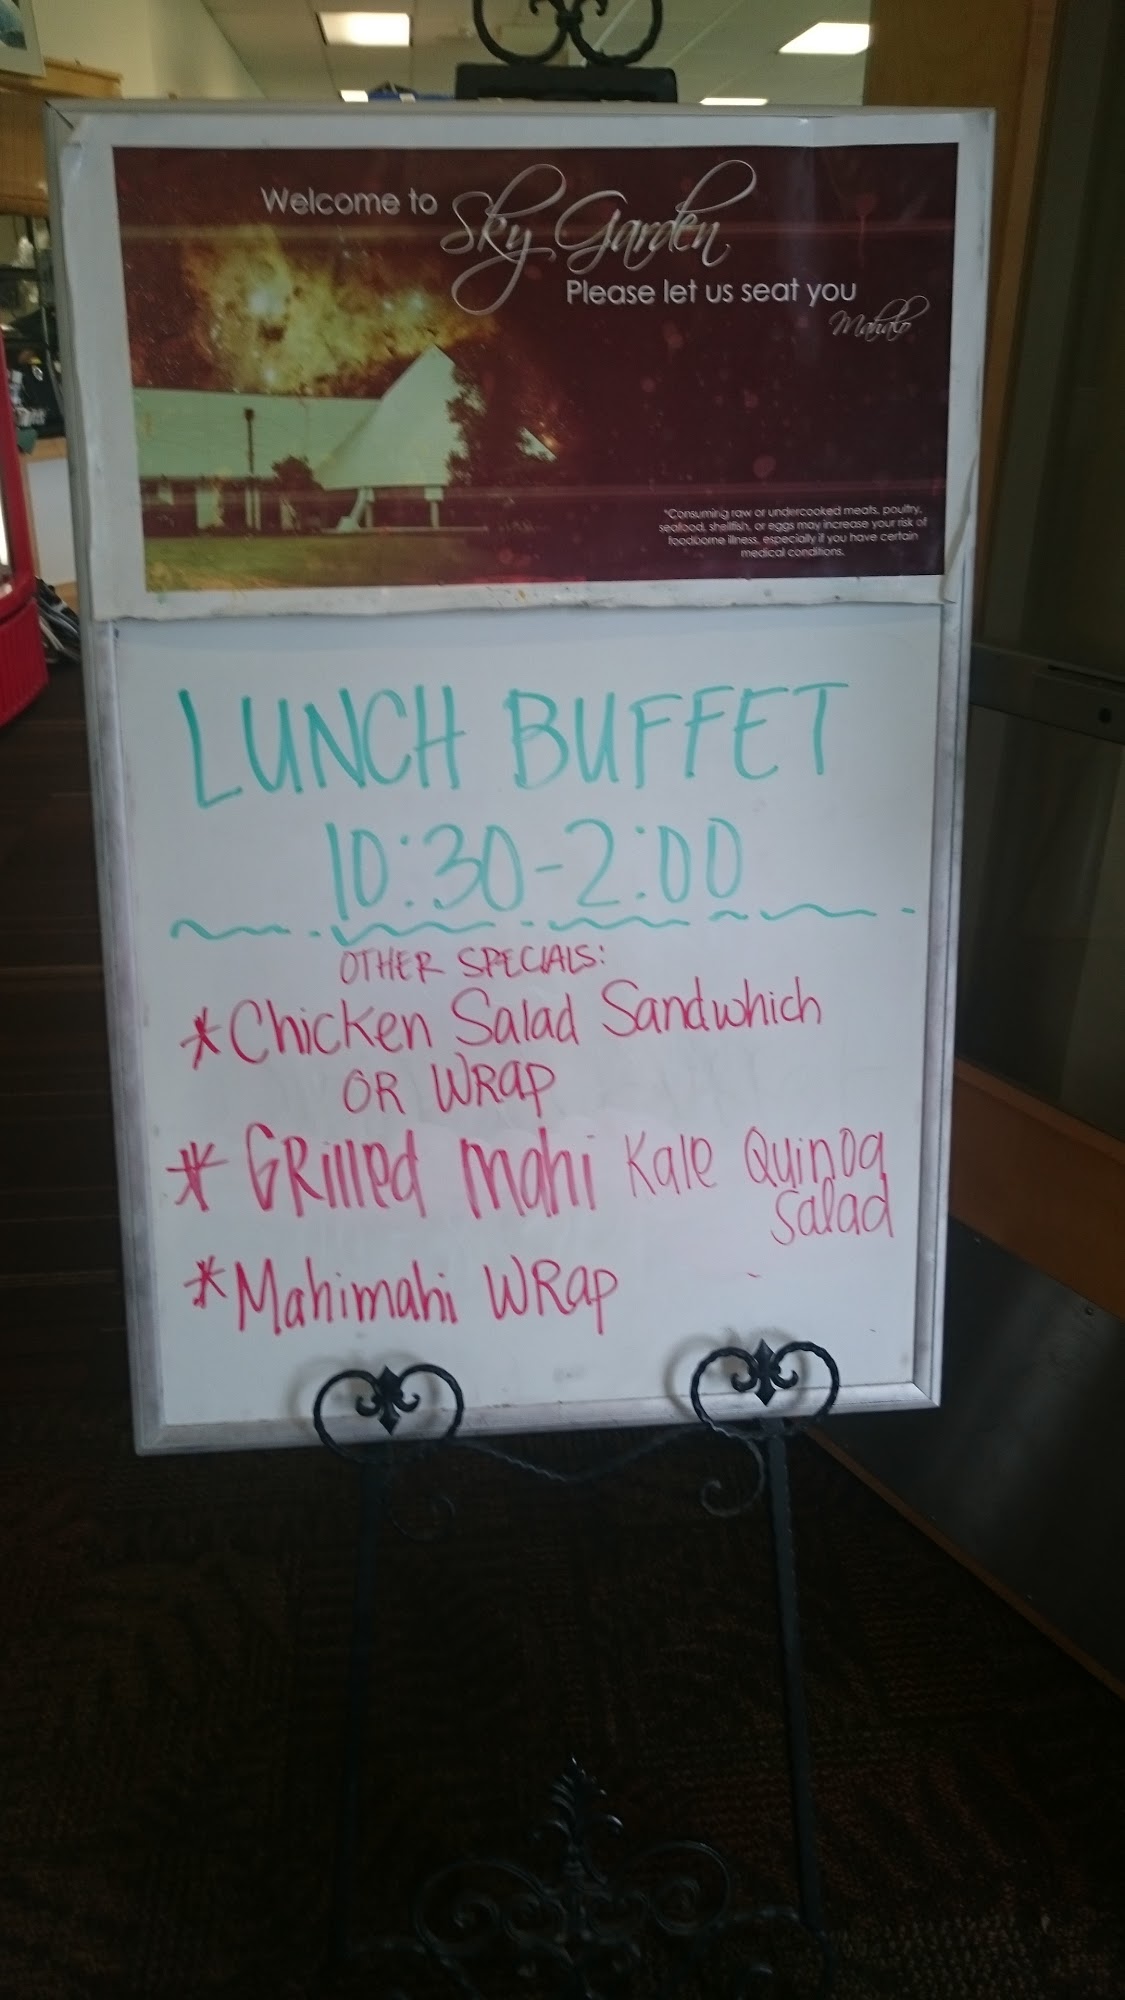 Welcome to Sky Garden
Please let us seat you
Mahalo
*Consuming raw or undercooked meats, poultry,
seafood, shellfish, or eggs may increase your risk of
foodborne illness, especially if you have certain
medical conditions.
LUNCH BUFFET
10:30-2:00
OTHER SPECIALS:
*Chicken Salad Sandwhich
OR WRap
* GRilled mahi Kale Quinoa
Salad
*Mahimahi WRap